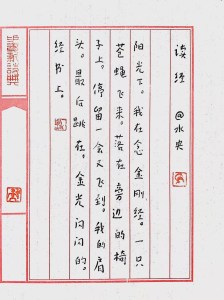 读经
@水央
阳光下。我在念金刚经。一只
苍蝇飞来。落在旁边的椅
子上。停留一会又飞到。我的肩
头。最后跳在。金光闪闪的。
经书上。